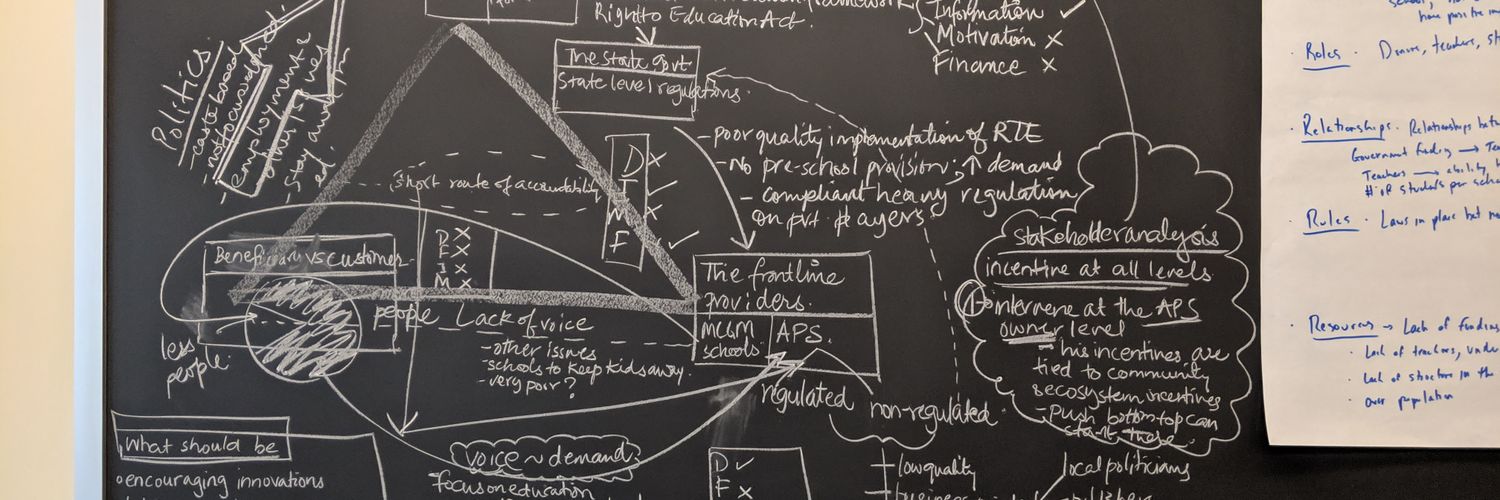 Right to Education Act.
Information ✓
Motivation ✗
Finance ✗
The state govt
State level regulations.
Politics.
- caste based
- not focused on ed.
employment &
- poor quality implementation of RTE
- No pre-school provision; ↑ demand
- compliant heavy regulation
on pvt. players.
short route of accountability
D ✗
I ✓
M ✗
F ✓
Beneficiary vs customer
D ✗
F ✗
I ✗
M ✗
people Lack of voice
- other issues
- schools to keep kids away.
- very poor?
less
people.
The frontline
providers.
MCGM
schools
APS.
regulated
non-regulated
stakeholder analysis
incentive at all levels
intervene at the APS
owner level
- his incentives are
tied to community
& ecosystem incentives
- Push bottom-top can
start there.
What should be
encouraging innovations
voice ~ demand
focus on education
D ✓
F ✗
low quality
business
local politicians
have positive
· Roles · Donors, teachers,
· Relationships · Relationships
Government funding → 
Teachers → ability
# of students per
· Rules · Laws in place but
· Resources → Lack of funding
· Lack of teachers,
· Lack of structure in the
· Over population